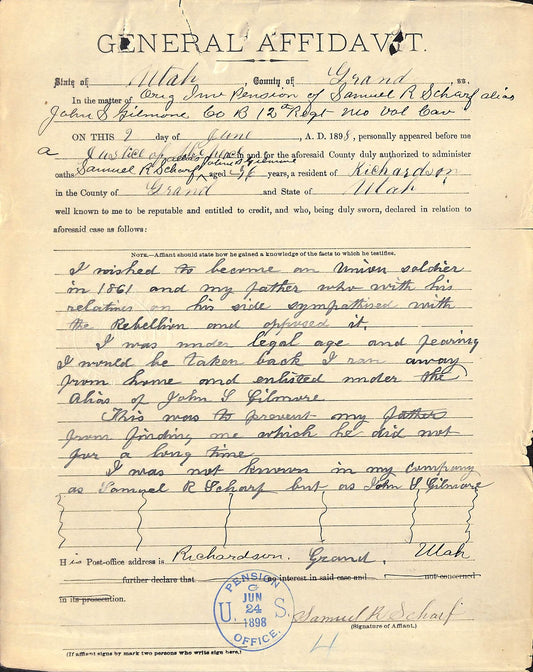 GENERAL AFFIDAVIT.
State of Utah County of Grand, ss.
In the matter of Orig Inv Pension of Samuel R Scharf alias
John S Gilmore Co B 12th Regt Mo Vol Cav
ON THIS 9 day of June, A. D. 1898, personally appeared before me
a Justice of the Peace in and for the aforesaid County duly authorized to administer
alias John S Gilmore
oaths Samuel R Scharf aged 56 years, a resident of Richardson
in the County of Grand and State of Utah
well known to me to be reputable and entitled to credit, and who, being duly sworn, declared in relation to
aforesaid case as follows:
NOTE.—Affiant should state how he gained a knowledge of the facts to which he testifies.
I wished to become an Union soldier
in 1861 and my father who with his
relatives on his side sympathised with
the Rebellion and opposed it.
I was under legal age and fearing
I would be taken back I ran away
from home and enlisted under the
Alias of John S Gilmore
This was to prevent my father
from finding me which he did not
for a long time
I was not known in my company
as Samuel R Scharf but as John S Gilmore
His Post-office address is Richardson. Grand, Utah
further declare that no interest in said case and not concerned
in its prosecution.
PENSION
G
JUN
U 24 S
1898
OFFICE.
Samuel R Scharf
(Signature of Affiant.)
(If affiant signs by mark two persons who write sign here.)